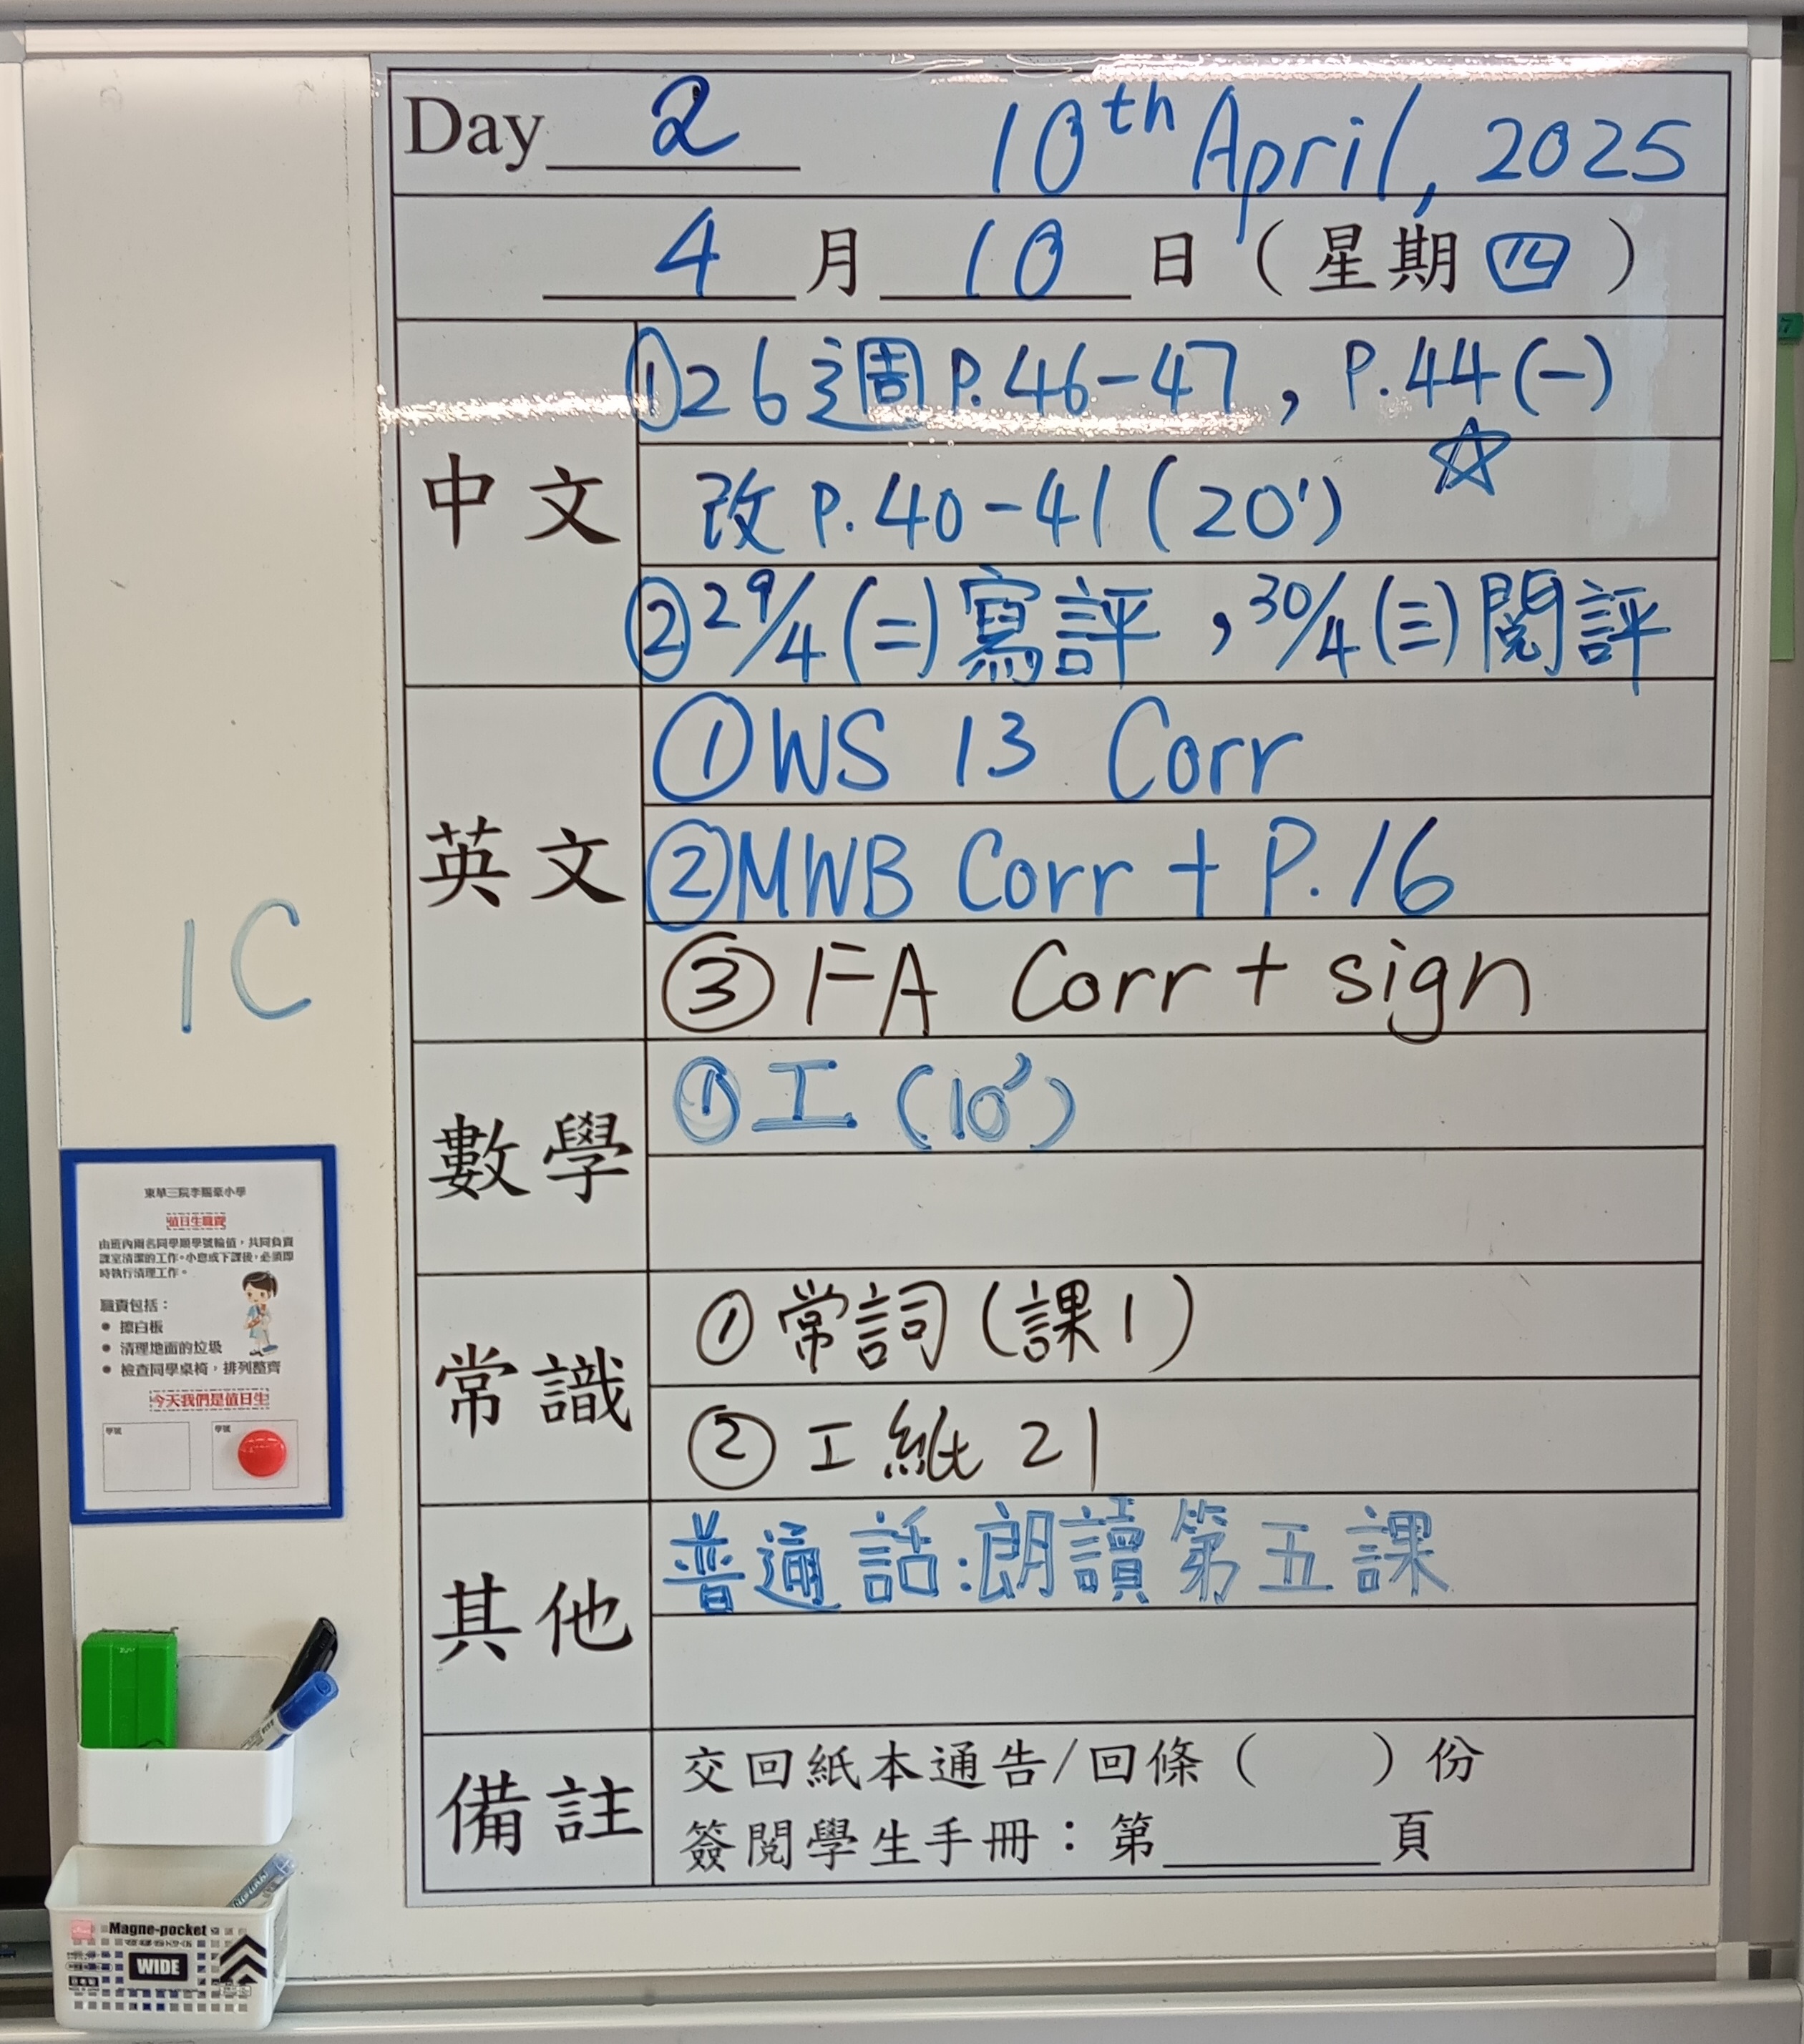 Day 2 10th April, 2025
4月10日（星期四）
中文
①26週P.46-47, P.44(一)
☆
改P.40-41(20')
②29/4(二)寫評,30/4(三)閱評
英文
①WS 13 Corr
②MWB Corr + P.16
③FA Corr + sign
數學
①工(10')
常識
①常詞(課1)
②工紙21
其他
普通話:朗讀第五課
備註
交回紙本通告/回條（ ）份
簽閱學生手冊：第____頁
1C
東華三院李賜豪小學
值日生職責
由班內兩名同學順學號輪值，共同負責
課室清潔的工作。小息或下課後，必須即
時執行清理工作。
職責包括：
● 擦白板
● 清理地面的垃圾
● 檢查同學桌椅，排列整齊
今天我們是值日生
學號 學號
Magne-pocket
WIDE